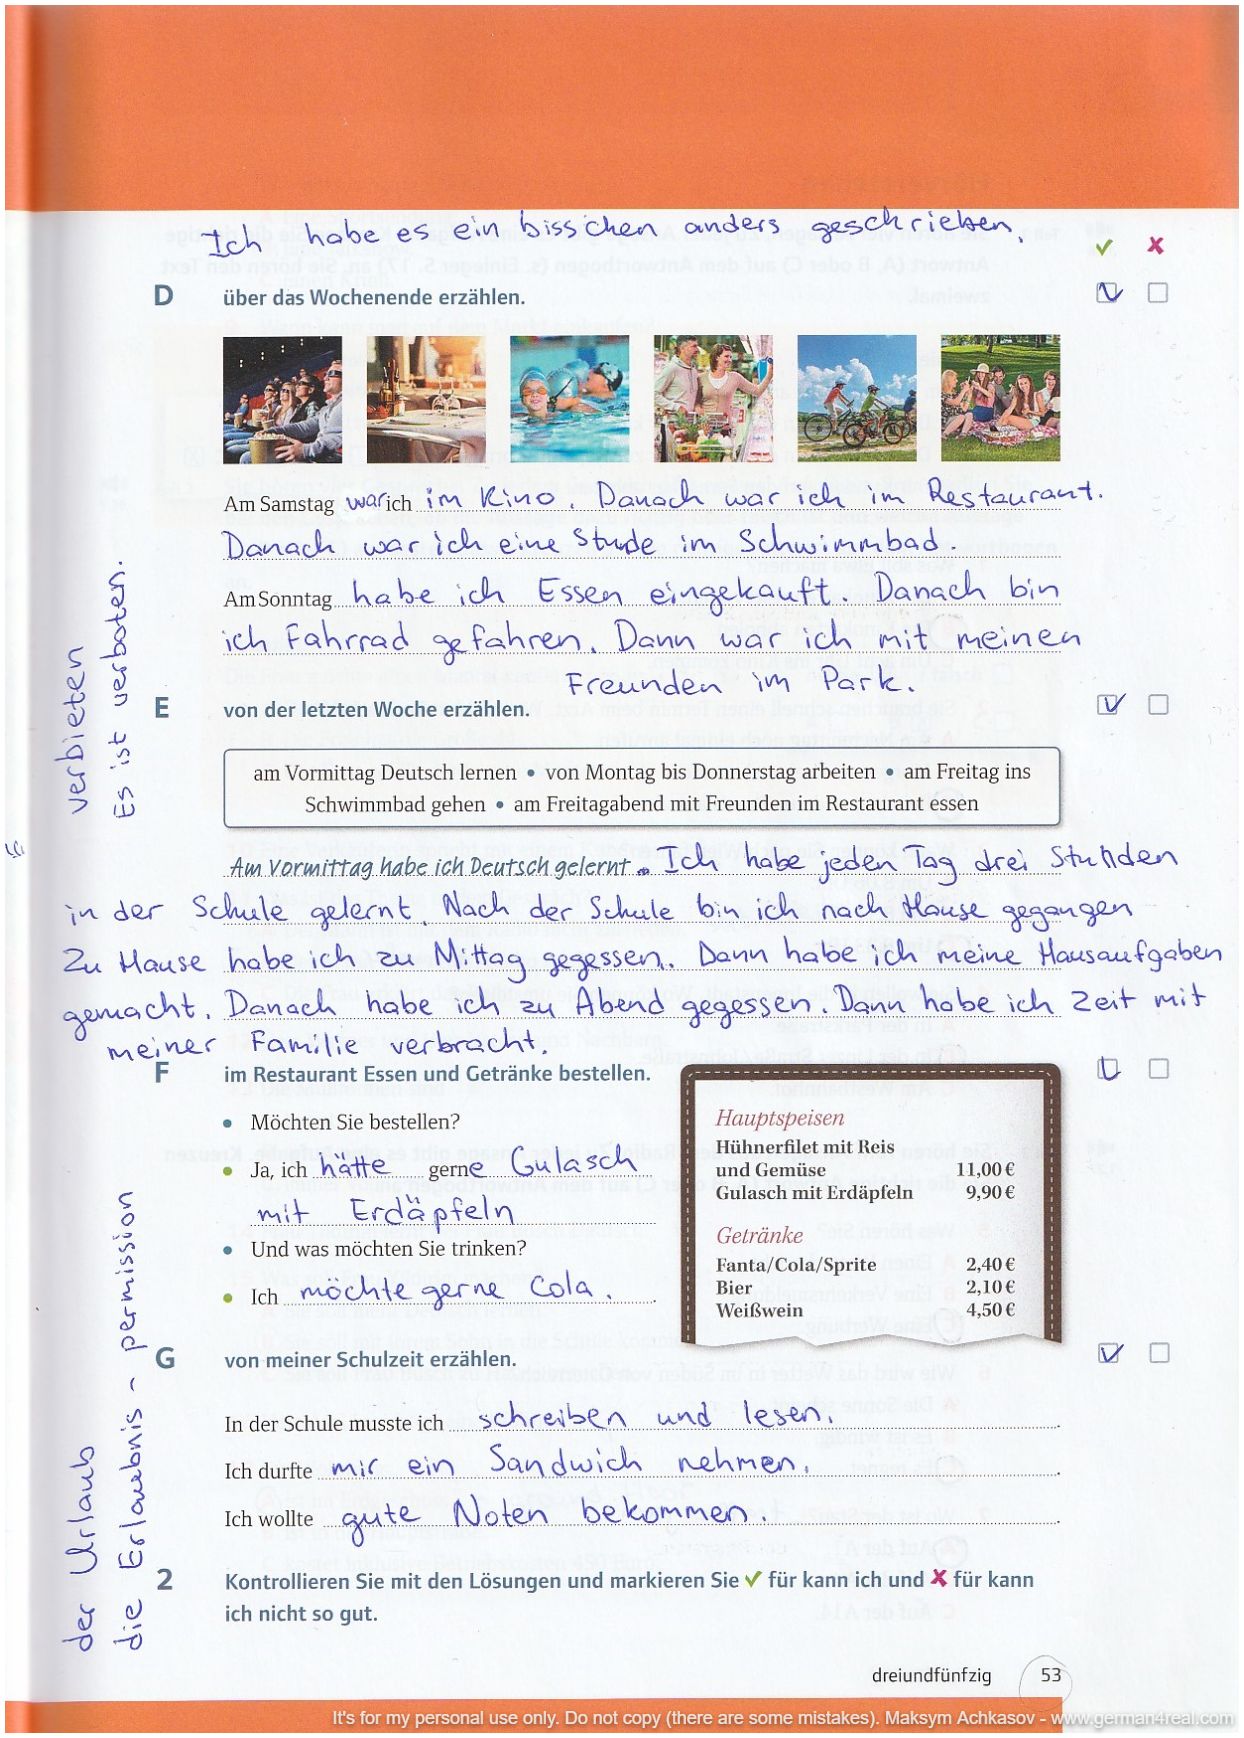 Ich habe es ein bisschen anders geschrieben.
✓ ✗
D über das Wochenende erzählen.
Am Samstag war ich im Kino. Danach war ich im Restaurant.
Danach war ich eine Stude im Schwimmbad.
Am Sonntag habe ich Essen eingekauft. Danach bin
ich Fahrrad gefahren. Dann war ich mit meinen
Freunden im Park.
verbieten
Es ist verboten.
E von der letzten Woche erzählen.
am Vormittag Deutsch lernen • von Montag bis Donnerstag arbeiten • am Freitag ins
Schwimmbad gehen • am Freitagabend mit Freunden im Restaurant essen
Am Vormittag habe ich Deutsch gelernt. Ich habe jeden Tag drei Stunden
in der Schule gelernt. Nach der Schule bin ich nach Hause gegangen
Zu Hause habe ich zu Mittag gegessen. Dann habe ich meine Hausaufgaben
gemacht. Danach habe ich zu Abend gegessen. Dann habe ich Zeit mit
meiner Familie verbracht.
F im Restaurant Essen und Getränke bestellen.
• Möchten Sie bestellen?
• Ja, ich hätte gerne Gulasch
mit Erdäpfeln
• Und was möchten Sie trinken?
• Ich möchte gerne Cola.
Hauptspeisen
Hühnerfilet mit Reis
und Gemüse 11,00 €
Gulasch mit Erdäpfeln 9,90 €
Getränke
Fanta/Cola/Sprite 2,40 €
Bier 2,10 €
Weißwein 4,50 €
G von meiner Schulzeit erzählen.
In der Schule musste ich schreiben und lesen.
Ich durfte mir ein Sandwich nehmen.
Ich wollte gute Noten bekommen.
der Urlaub
die Erlaubnis - permission
2 Kontrollieren Sie mit den Lösungen und markieren Sie ✓ für kann ich und ✗ für kann
ich nicht so gut.
dreiundfünfzig 53
It's for my personal use only. Do not copy (there are some mistakes). Maksym Achkasov - www.german4real.com